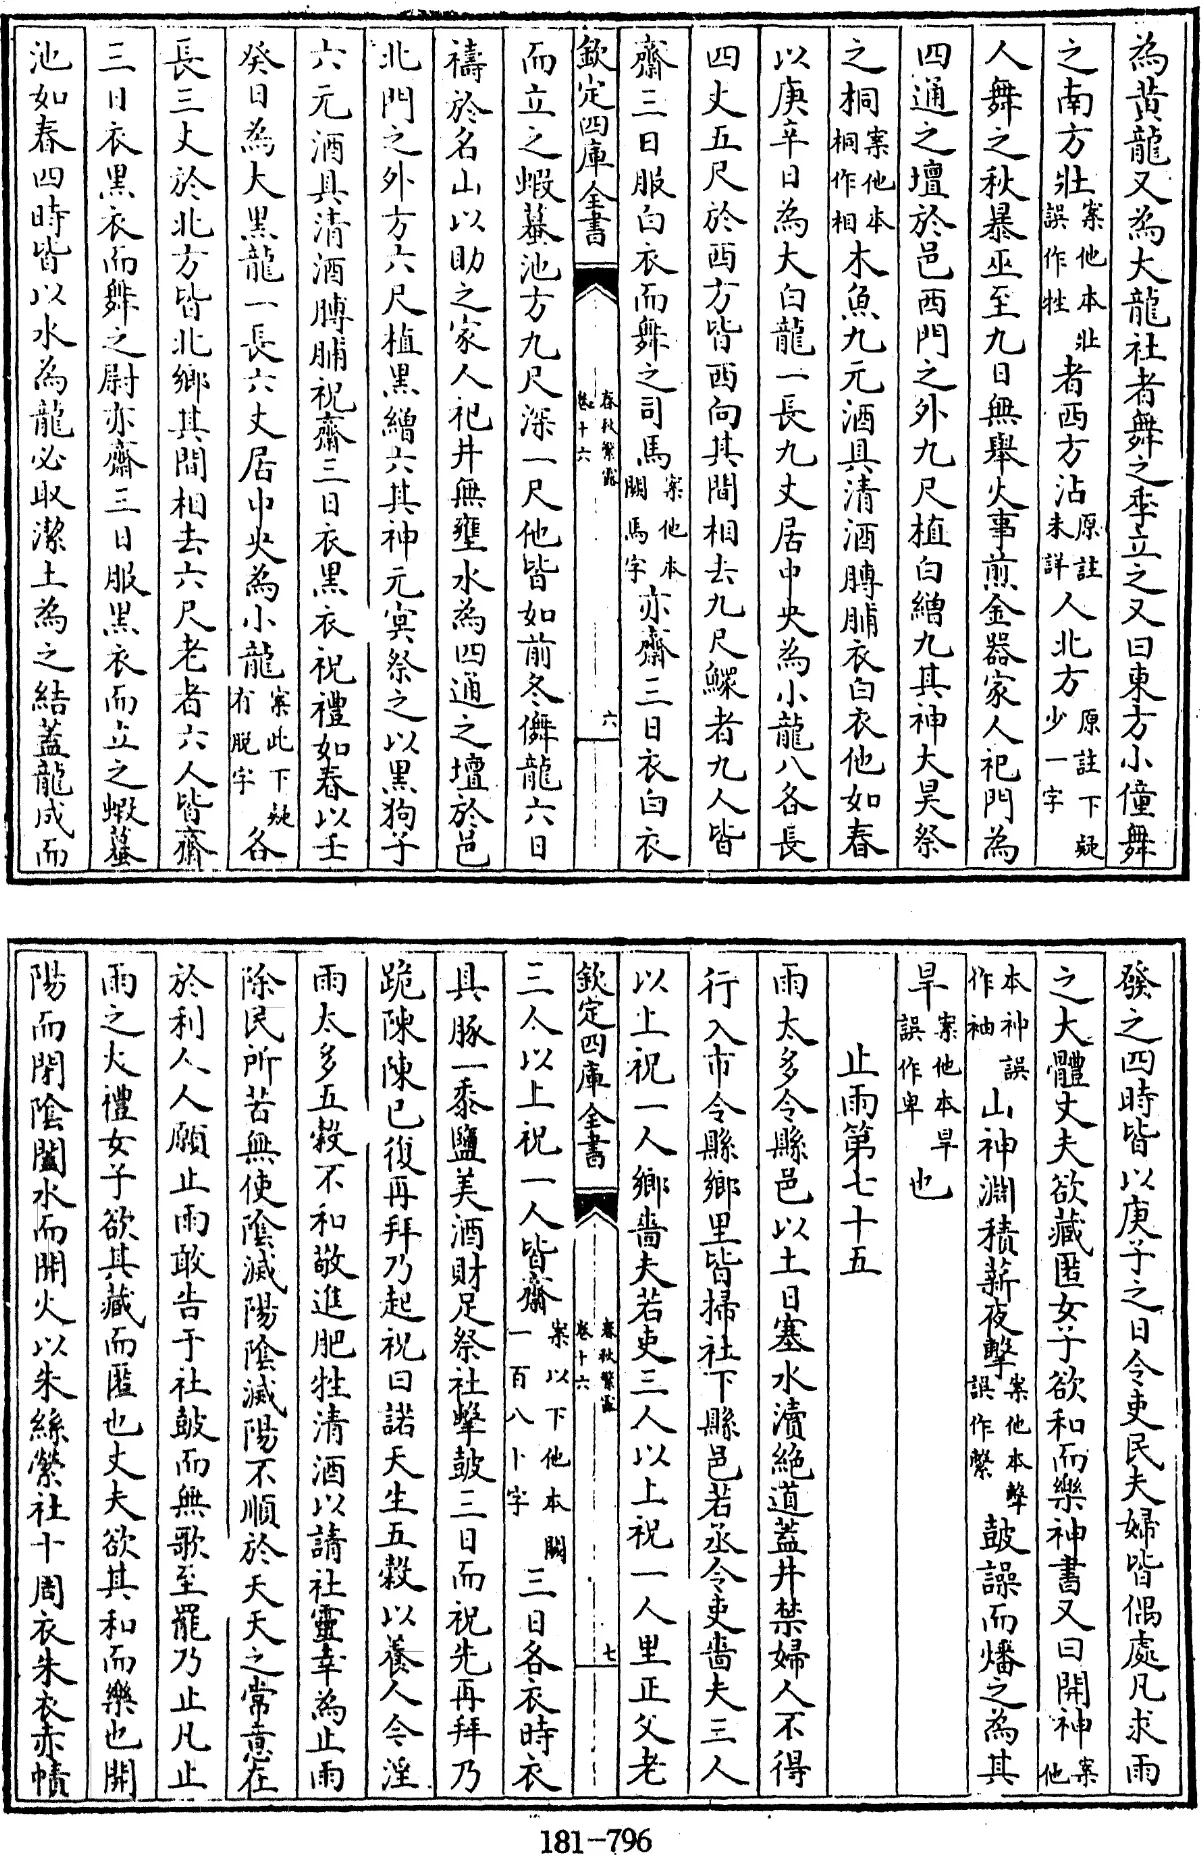 為黃龍又為大龍社者舞之季立之又曰東方小僮舞
之南方壯案他本壯誤作牡者西方沾原註未詳人北方原註下疑少一字
人舞之秋暴巫至九日無舉火事煎金器家人祀門為
四通之壇於邑西門之外九尺植白繒九其神大昊祭
之桐案他本桐作相木魚九元酒具清酒膊脯衣白衣他如春
以庚辛日為大白龍一長九丈居中央為小龍八各長
四丈五尺於西方皆西向其間相去九尺鰥者九人皆
齋三日服白衣而舞之司馬案他本闕馬字亦齋三日衣白衣
欽定四庫全書 春秋繁露卷十六 六
而立之蝦蟇池方九尺深一尺他皆如前冬儛龍六日
禱於名山以助之家人祀井無壅水為四通之壇於邑
北門之外方六尺植黑繒六其神元冥祭之以黑狗子
六元酒具清酒膊脯祝齋三日衣黑衣祝禮如春以壬
癸日為大黑龍一長六丈居中央為小龍案此下疑有脫字各
長三丈於北方皆北鄉其間相去六尺老者六人皆齋
三日衣黑衣而舞之尉亦齋三日服黑衣而立之蝦蟇
池如春四時皆以水為龍必取潔土為之結蓋龍成而
發之四時皆以庚子之日令吏民夫婦皆偶處凡求雨
之大體丈夫欲藏匿女子欲和而樂神書又曰開神案他
本神誤作袖山神淵積薪夜擊案他本擊誤作繫鼓譟而燔之為其
旱案他本旱誤作卑也
止雨第七十五
雨太多令縣邑以土日塞水瀆絶道蓋井禁婦人不得
行入市令縣鄉里皆掃社下縣邑若丞令吏嗇夫三人
以上祝一人鄉嗇夫若吏三人以上祝一人里正父老
欽定四庫全書 春秋繁露卷十六 七
三人以上祝一人皆齋案以下他本闕一百八十字三日各衣時衣
具豚一黍鹽美酒財足祭社擊鼓三日而祝先再拜乃
跪陳陳已復再拜乃起祝曰諾天生五穀以養人今淫
雨太多五穀不和敬進肥牲清酒以請社靈幸為止雨
除民所苦無使陰滅陽陰滅陽不順於天天之常意在
於利人人願止雨敢告于社鼓而無歌至罷乃止凡止
雨之大禮女子欲其藏而匿也丈夫欲其和而樂也開
陽而閉陰闔水而開火以朱絲縈社十周衣朱衣赤幘
181-796